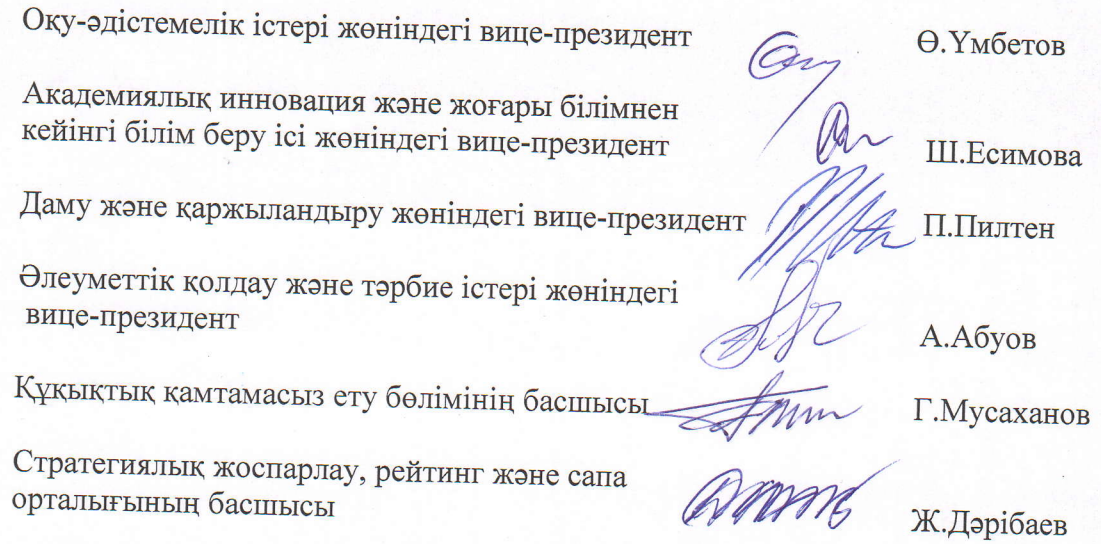 Оқу-әдістемелік істері жөніндегі вице-президент Ө.Үмбетов
Академиялық инновация және жоғары білімнен
кейінгі білім беру ісі жөніндегі вице-президент Ш.Есимова
Даму және қаржыландыру жөніндегі вице-президент П.Пилтен
Әлеуметтік қолдау және тәрбие істері жөніндегі
вице-президент А.Абуов
Құқықтық қамтамасыз ету бөлімінің басшысы Г.Мусаханов
Стратегиялық жоспарлау, рейтинг және сапа
орталығының басшысы Ж.Дәрібаев